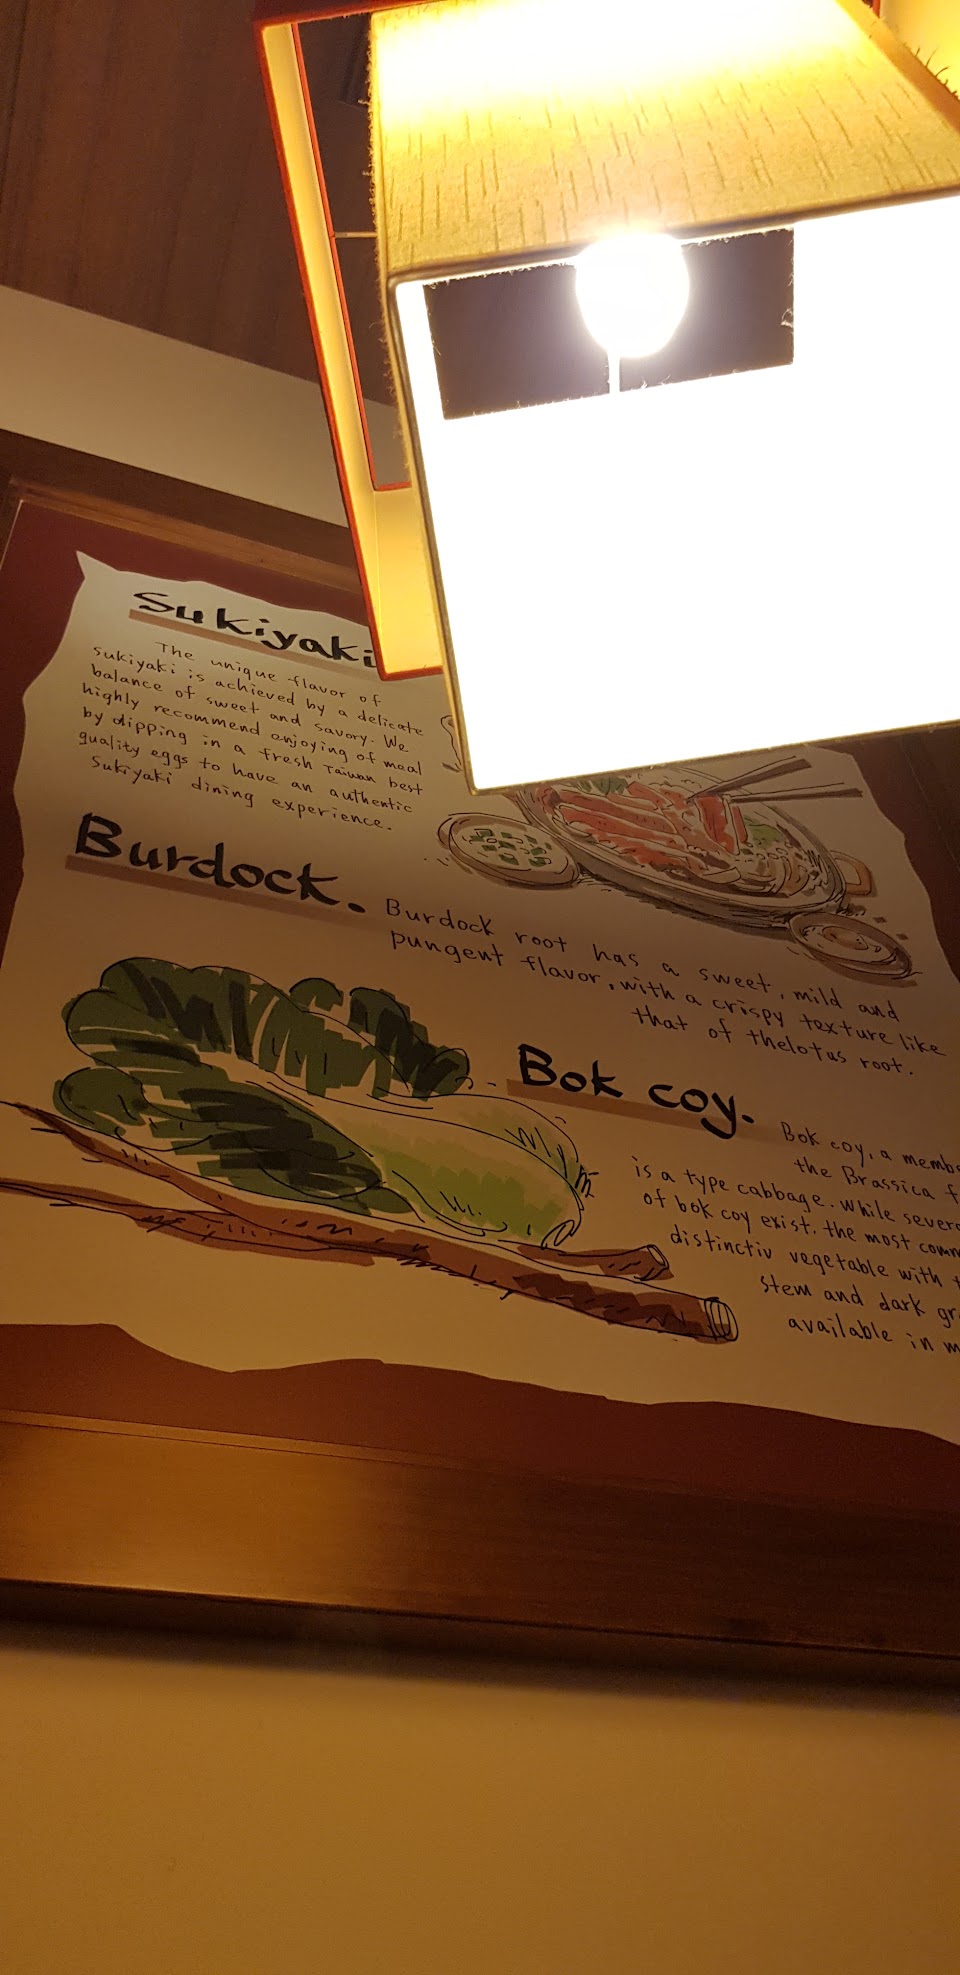 Sukiyaki
The unique flavor of
sukiyaki is achieved by a delicate
balance of sweet and savory. We
highly recommend enjoying of meal
by dipping in a fresh Taiwan best
quality eggs to have an authentic
Sukiyaki dining experience.
Burdock.
Burdock root has a sweet, mild and
pungent flavor, with a crispy texture like
that of thelotus root.
Bok coy.
Bok coy, a
the Brassica
is a type cabbage. While
of bok coy exist, the most
distinctiv vegetable with
stem and dark
available in